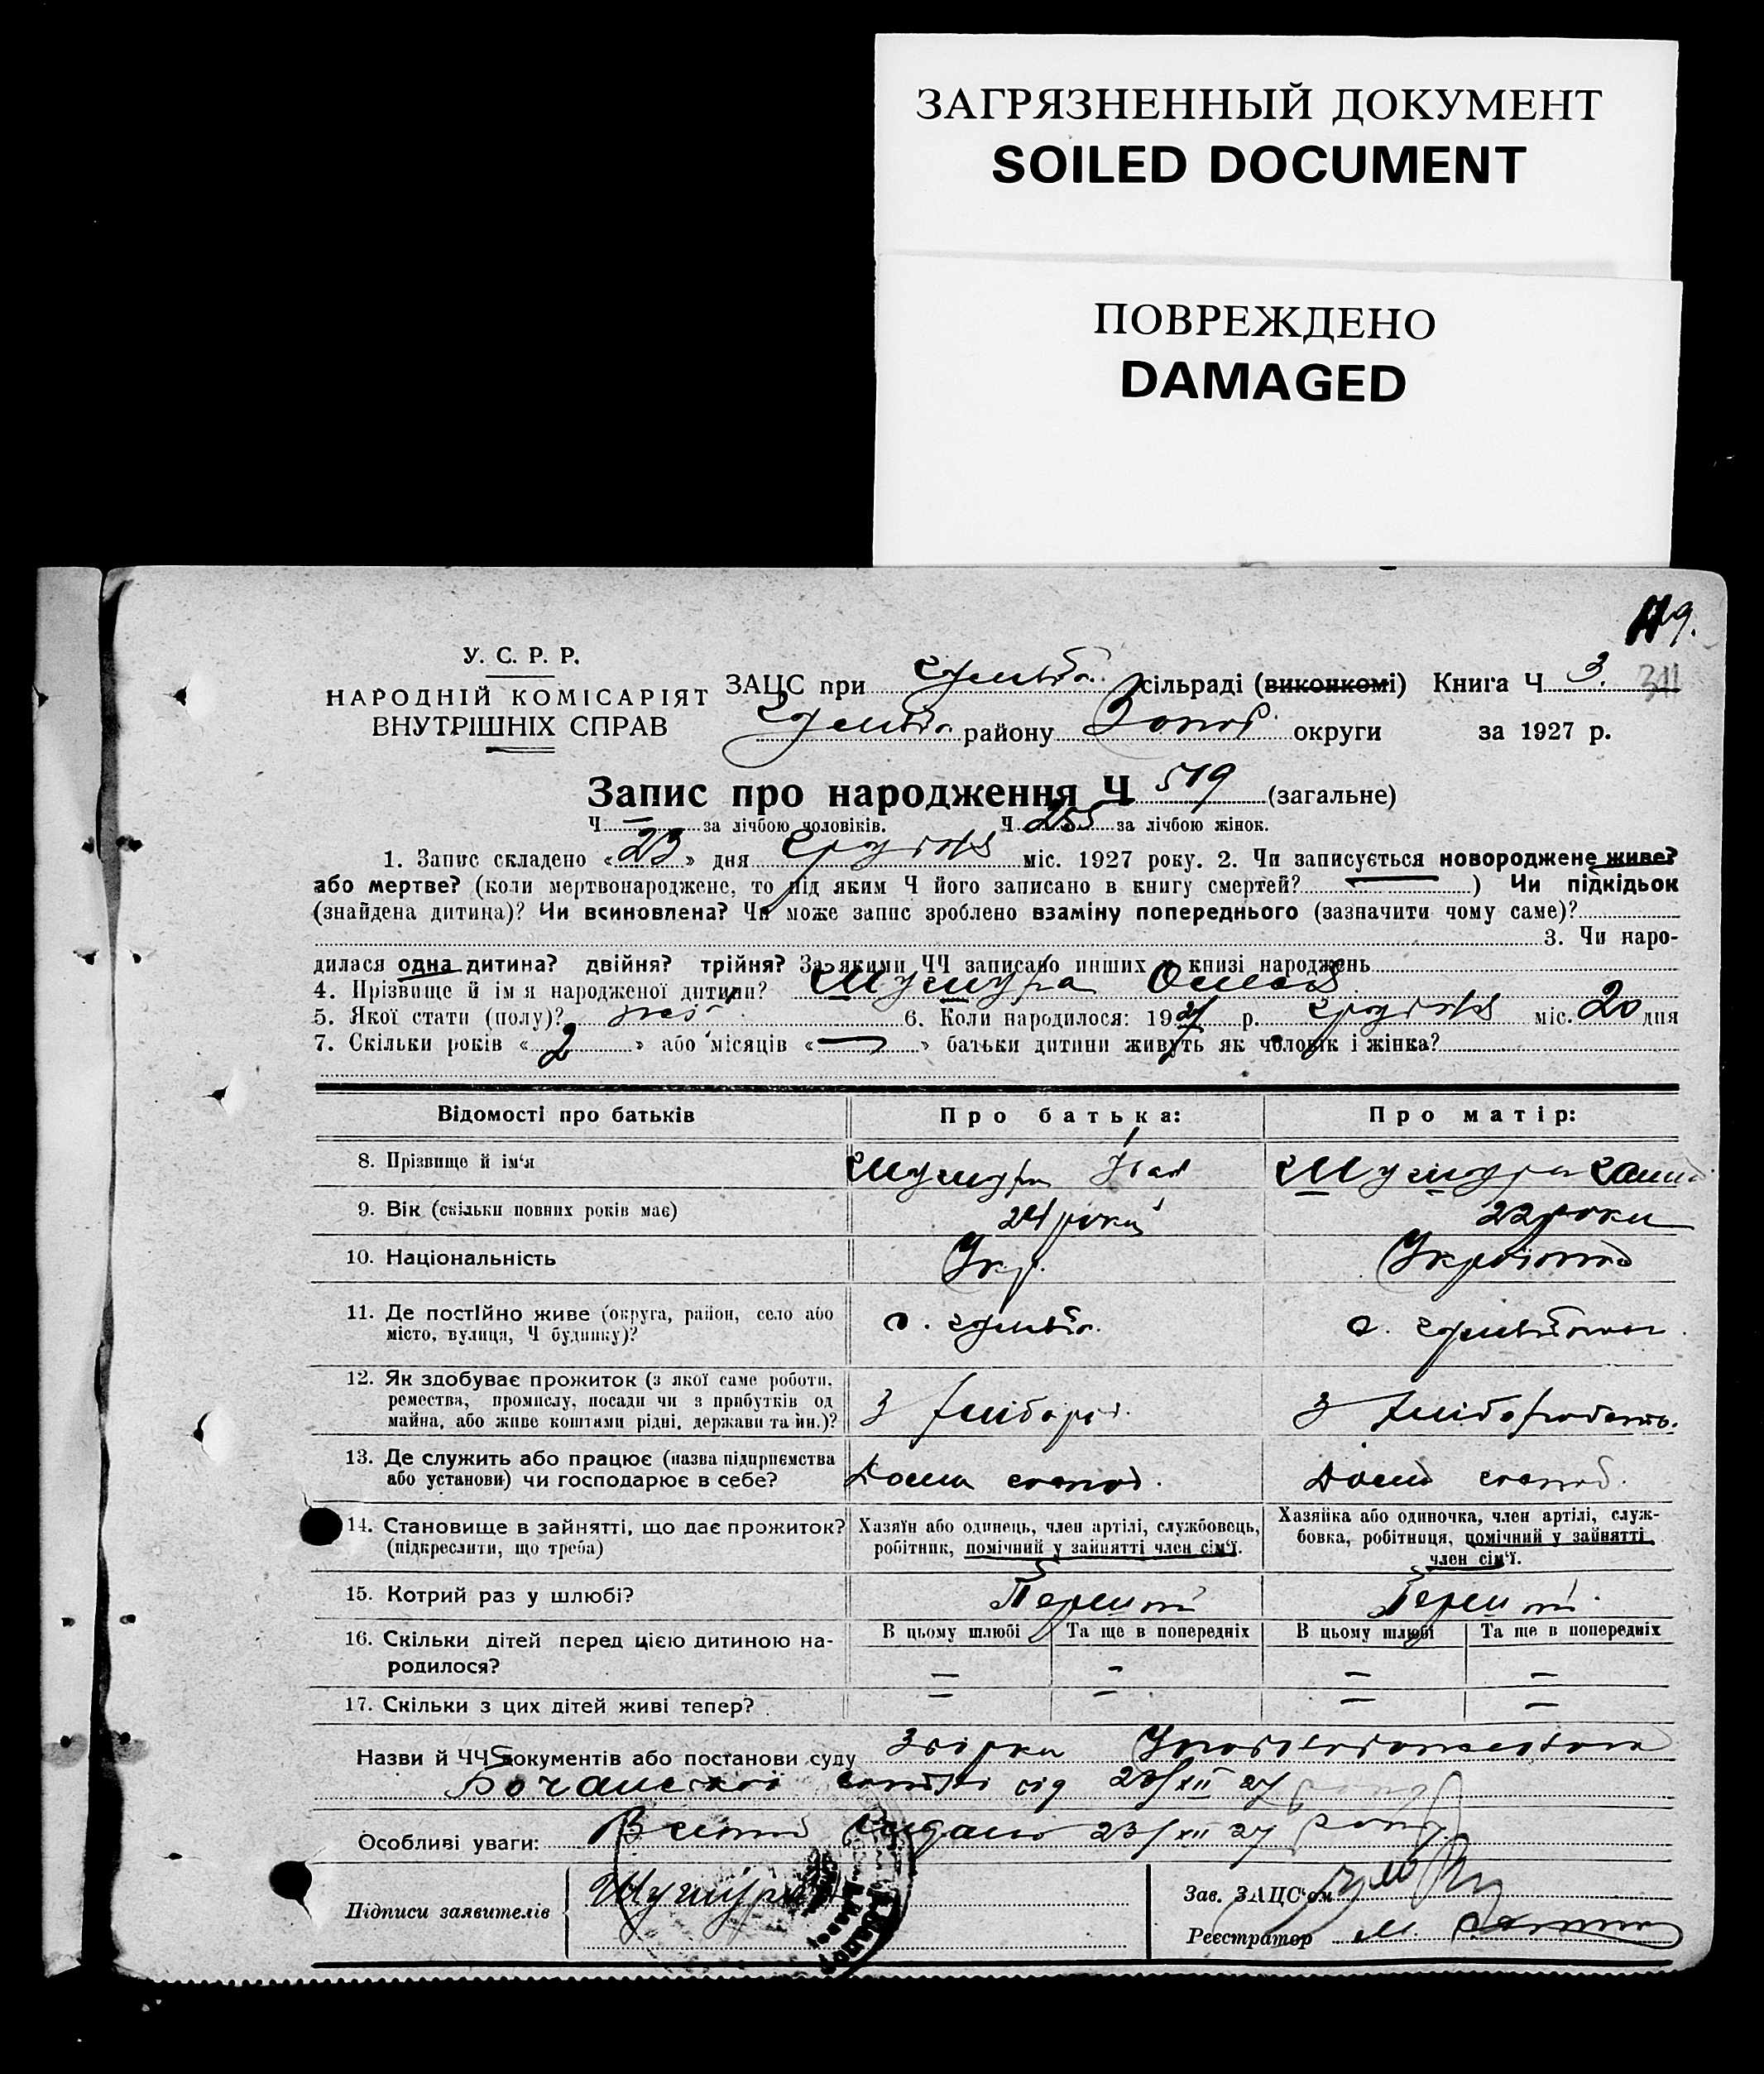 ЗАГРЯЗНЕННЫЙ ДОКУМЕНТ
SOILED DOCUMENT
ПОВРЕЖДЕНО
DAMAGED
У. С. Р. Р.
НАРОДНІЙ КОМІСАРІЯТ
ВНУТРІШНІХ СПРАВ
ЗАЦС при сільраді (виконкомі) Книга Ч 3. 311
району округи за 1927 р.
Запис про народження Ч 519 (загальне)
Ч — за лічбою чоловіків. Ч 255 за лічбою жінок.
1. Запис складено «23» дня грудня міс. 1927 року. 2. Чи записується новороджене живе?
або мертве? (коли мертвонароджене, то під яким Ч його записано в книгу смертей? — ) Чи підкідьок
(знайдена дитина)? Чи всиновлена? Чи може запис зроблено взаміну попереднього (зазначити чому саме)?
3. Чи наро-
дилася одна дитина? двійня? трійня? За якими ЧЧ записано инших в книзі народжень
4. Прізвище й ім'я народженої дитини? Шушура
5. Якої стати (полу)? 6. Коли народилося: 1927 р. грудня міс. 20 дня
7. Скільки років «2» або місяців «—» батьки дитини живуть як чоловік і жінка?
Відомості про батьків Про батька: Про матір:
8. Прізвище й ім'я Шушура Іван Шушура
9. Вік (скільки повних років має) 24 роки 22 роки
10. Національність Укр. Українка
11. Де постійно живе (округа, район, село або
місто, вулиця, Ч будинку)? с. с.
12. Як здобуває прожиток (з якої саме роботи,
ремества, промислу, посади чи з прибутків од
майна, або живе коштами рідні, держави та ин.)? З хлібороб. З хлібо
13. Де служить або працює (назва підприємства
або установи) чи господарює в себе? Дома господ. Дома господ.
14. Становище в зайнятті, що дає прожиток?
(підкреслити, що треба)
Хазяїн або одинець, член артілі, службовець,
робітник, помічний у зайнятті член сім'ї.
Хазяйка або одиночка, член артілі, служ-
бовка, робітниця, помічний у зайнятті
член сім'ї.
15. Котрий раз у шлюбі? Перший Перший
В цьому шлюбі Та ще в попередніх В цьому шлюбі Та ще в попередніх
16. Скільки дітей перед цією дитиною на-
родилося? — — — —
17. Скільки з цих дітей живі тепер? — — — —
Назви й ЧЧ документів або постанови суду
від 23/XII 27
Особливі уваги: видано 23/XII 27 року
Підписи заявителів Шушура
Зав. ЗАЦС'ом
Реєстратор М.